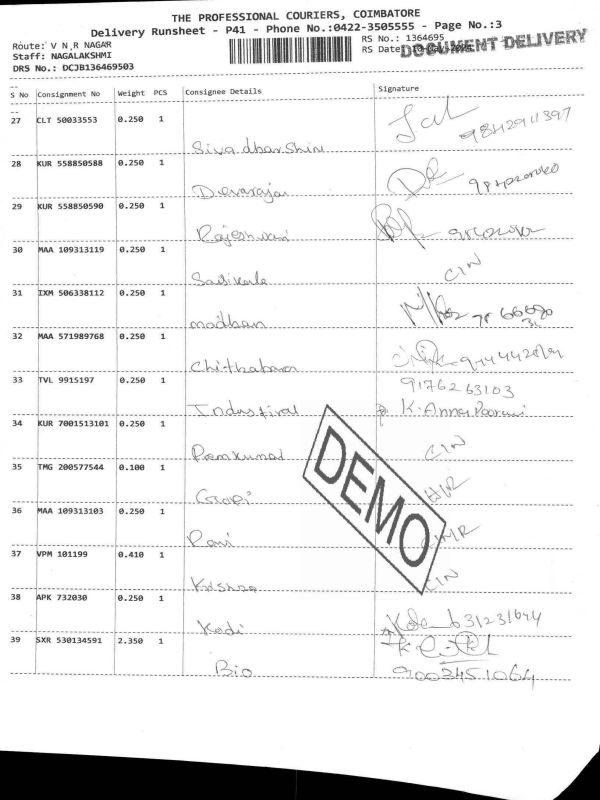 THE PROFESSIONAL COURIERS, COIMBATORE
Delivery Runsheet - P41 - Phone No.:0422-3505555 - Page No.:3
Route: V N R NAGAR RS No.: 1364695
Staff: NAGALAKSHMI RS Date:
DOCUMENT DELIVERY
DRS No.: DCJB136469503
S No Consignment No Weight PCS Consignee Details Signature
27 CLT 50033553 0.250 1
Sivadharshini
28 KUR 558850588 0.250 1
Devaraja
29 KUR 558850590 0.250 1
Rajeshwari
30 MAA 109313119 0.250 1 CIN
Sasikala
31 IXM 506338112 0.250 1
madhan
32 MAA 571989768 0.250 1
33 TVL 9915197 0.250 1 9176263103
Industrial K. Anna Poorani
34 KUR 7001513101 0.250 1 CIN
Ramkumar
35 TMG 200577544 0.100 1
Gopi
36 MAA 109313103 0.250 1
Rani
37 VPM 101199 0.410 1 CIN
Krishna
38 APK 732030 0.250 1
Kodi
39 SXR 530134591 2.350 1
Bio 9003451064
DEMO